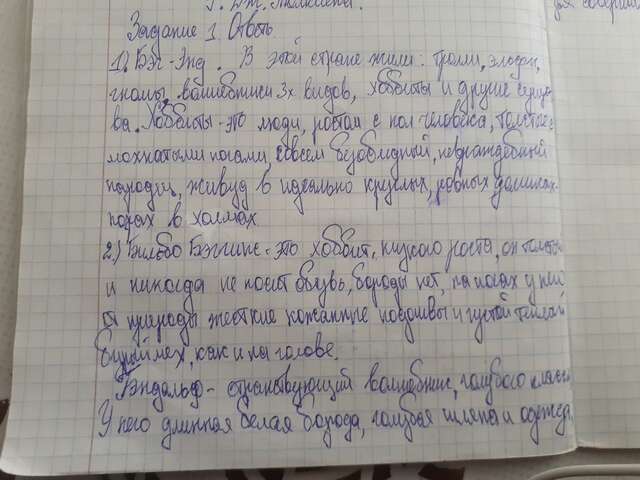 Г. Дж. Толкиена.
Задание 1. Ответь
1). Бэг-Энд. В этой стране жили: тролли, эльфы,
гномы, волшебники 3х видов, хоббиты и другие сущест
ва. Хоббиты - это люди, ростом с пол человека, толстые с
мохнатыми ногами, совсем безобидный, невраждебный
народец, живуд в идеально круглых, ровных домиках-
норах в холмах.
2.) Бильбо Бэггинс - это хоббит, низкого роста, он толсты
и никогда не носит обувь, бороды нет, на ногах у них
от природы жесткие кожанные подошвы и густой теплый
бурый мех, как и на голове.
Гэндальф - странствующий волшебник, голубого класса
У него длинная белая борода, голубая шляпа и одежда,